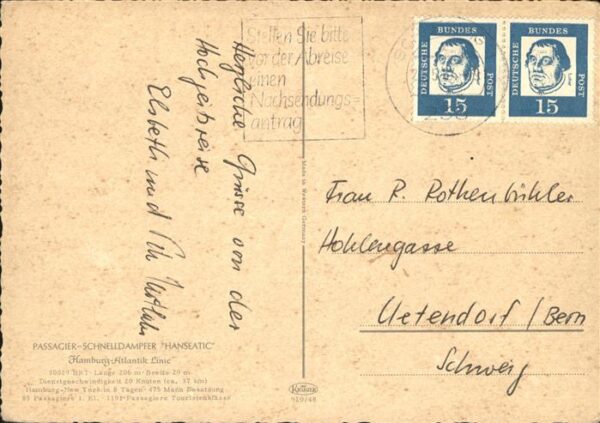 Herzliche Grüsse von der
Hochzeitsreise
Elsbeth und
Stellen Sie bitte
vor der Abreise
einen
Nachsendungs=
antrag
DEUTSCHE
BUNDES
POST
15
DEUTSCHE
BUNDES
POST
15
Made in Western Germany
Frau R. Rothenbühler
Hohlengasse
Uetendorf / Bern
Schweiz
PASSAGIER-SCHNELLDAMPFER "HANSEATIC"
Hamburg-Atlantik Linie
30029 BRT · Länge 206 m · Breite 29 m
Dienstgeschwindigkeit 20 Knoten (ca. 37 km)
Hamburg-New York in 8 Tagen · 475 Mann Besatzung
85 Passagiere 1. Kl. · 1191 Passagiere Touristenklasse
Krüger
910/48